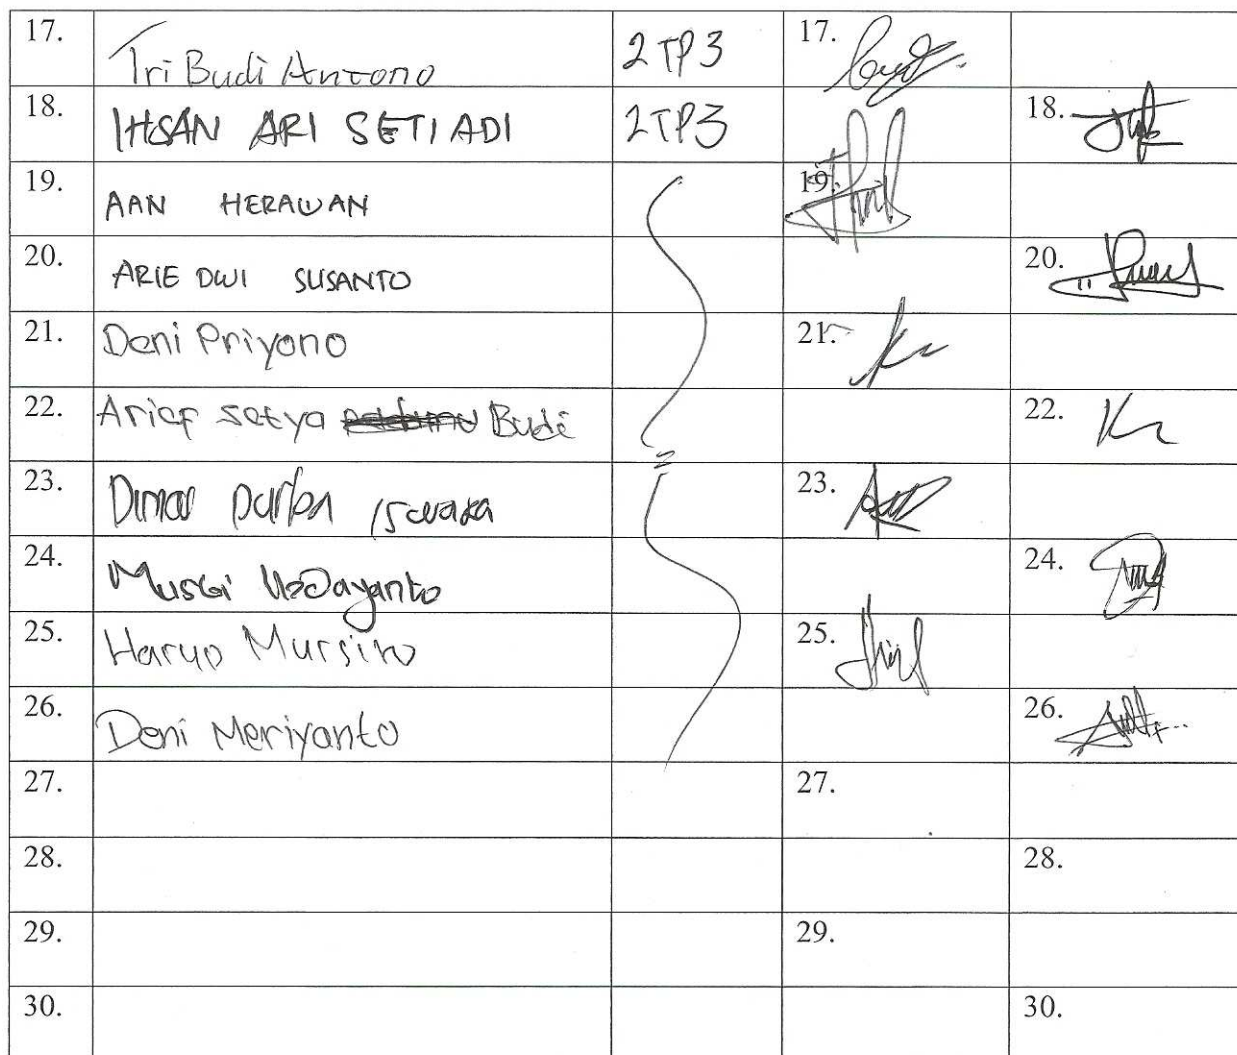 17. Tri Budi Antono 2 TP3 17.
18. IHSAN ARI SETIADI 2TP3 18.
19. AAN HERAWAN 19.
20. ARIE DWI SUSANTO 20.
21. Deni Priyono 21.
22. Arief Setya Budi 22.
23. Dimas Purba 23.
24. 24.
25. Haryo Mursito 25.
26. Deni Meriyanto 26.
27. 27.
28. 28.
29. 29.
30. 30.